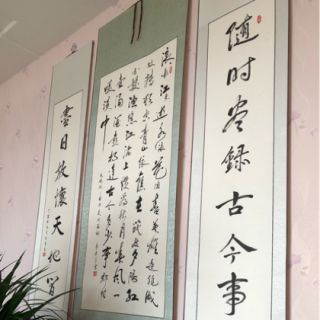 随时录古今事
滚滚长江东逝水浪花淘尽英雄是非成
败转头空青山依旧在几度夕阳红
白发渔樵江渚上惯看秋月春风一
壶浊酒喜相逢古今多少事都付
笑谈中
尽日放怀天地间